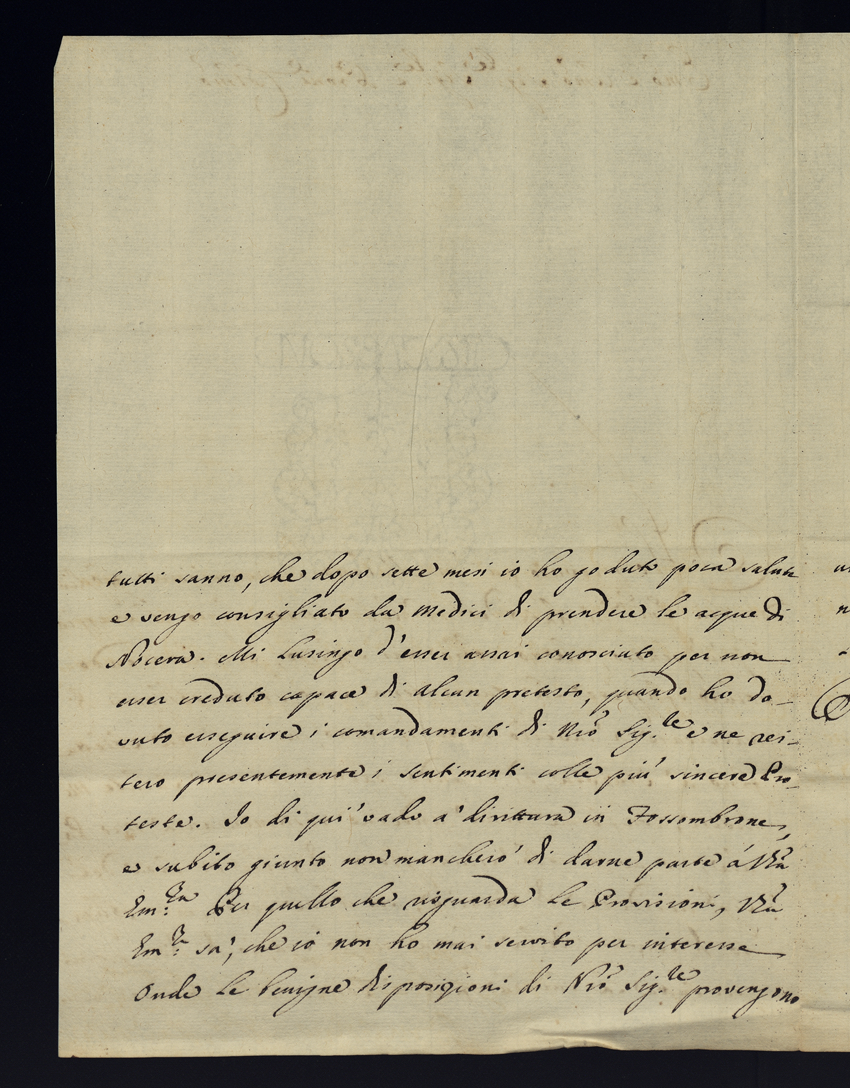 tutti sanno, che dopo sette mesi io ho goduto poca salute
e vengo consigliato da medici di prendere le acque di
Nocera. Mi lusingo d'esser assai conosciuto per non
esser creduto capace di alcun pretesto, quando ho do-
vuto esseguire i comandamenti di Nrõ Sig.re e ne rei-
tero presentemente i sentimenti colle più sincere Pro-
teste. Io di quì vado a' dirittura in Fossombrone,
e subito giunto non mancherò di darne parte á Vrã
Em.za Per quello che risguarda le Provisioni, Vrã
Em.za sà, che io non ho mai servito per interesse
Onde le benigne disposizioni di Nrõ Sig.re provengono